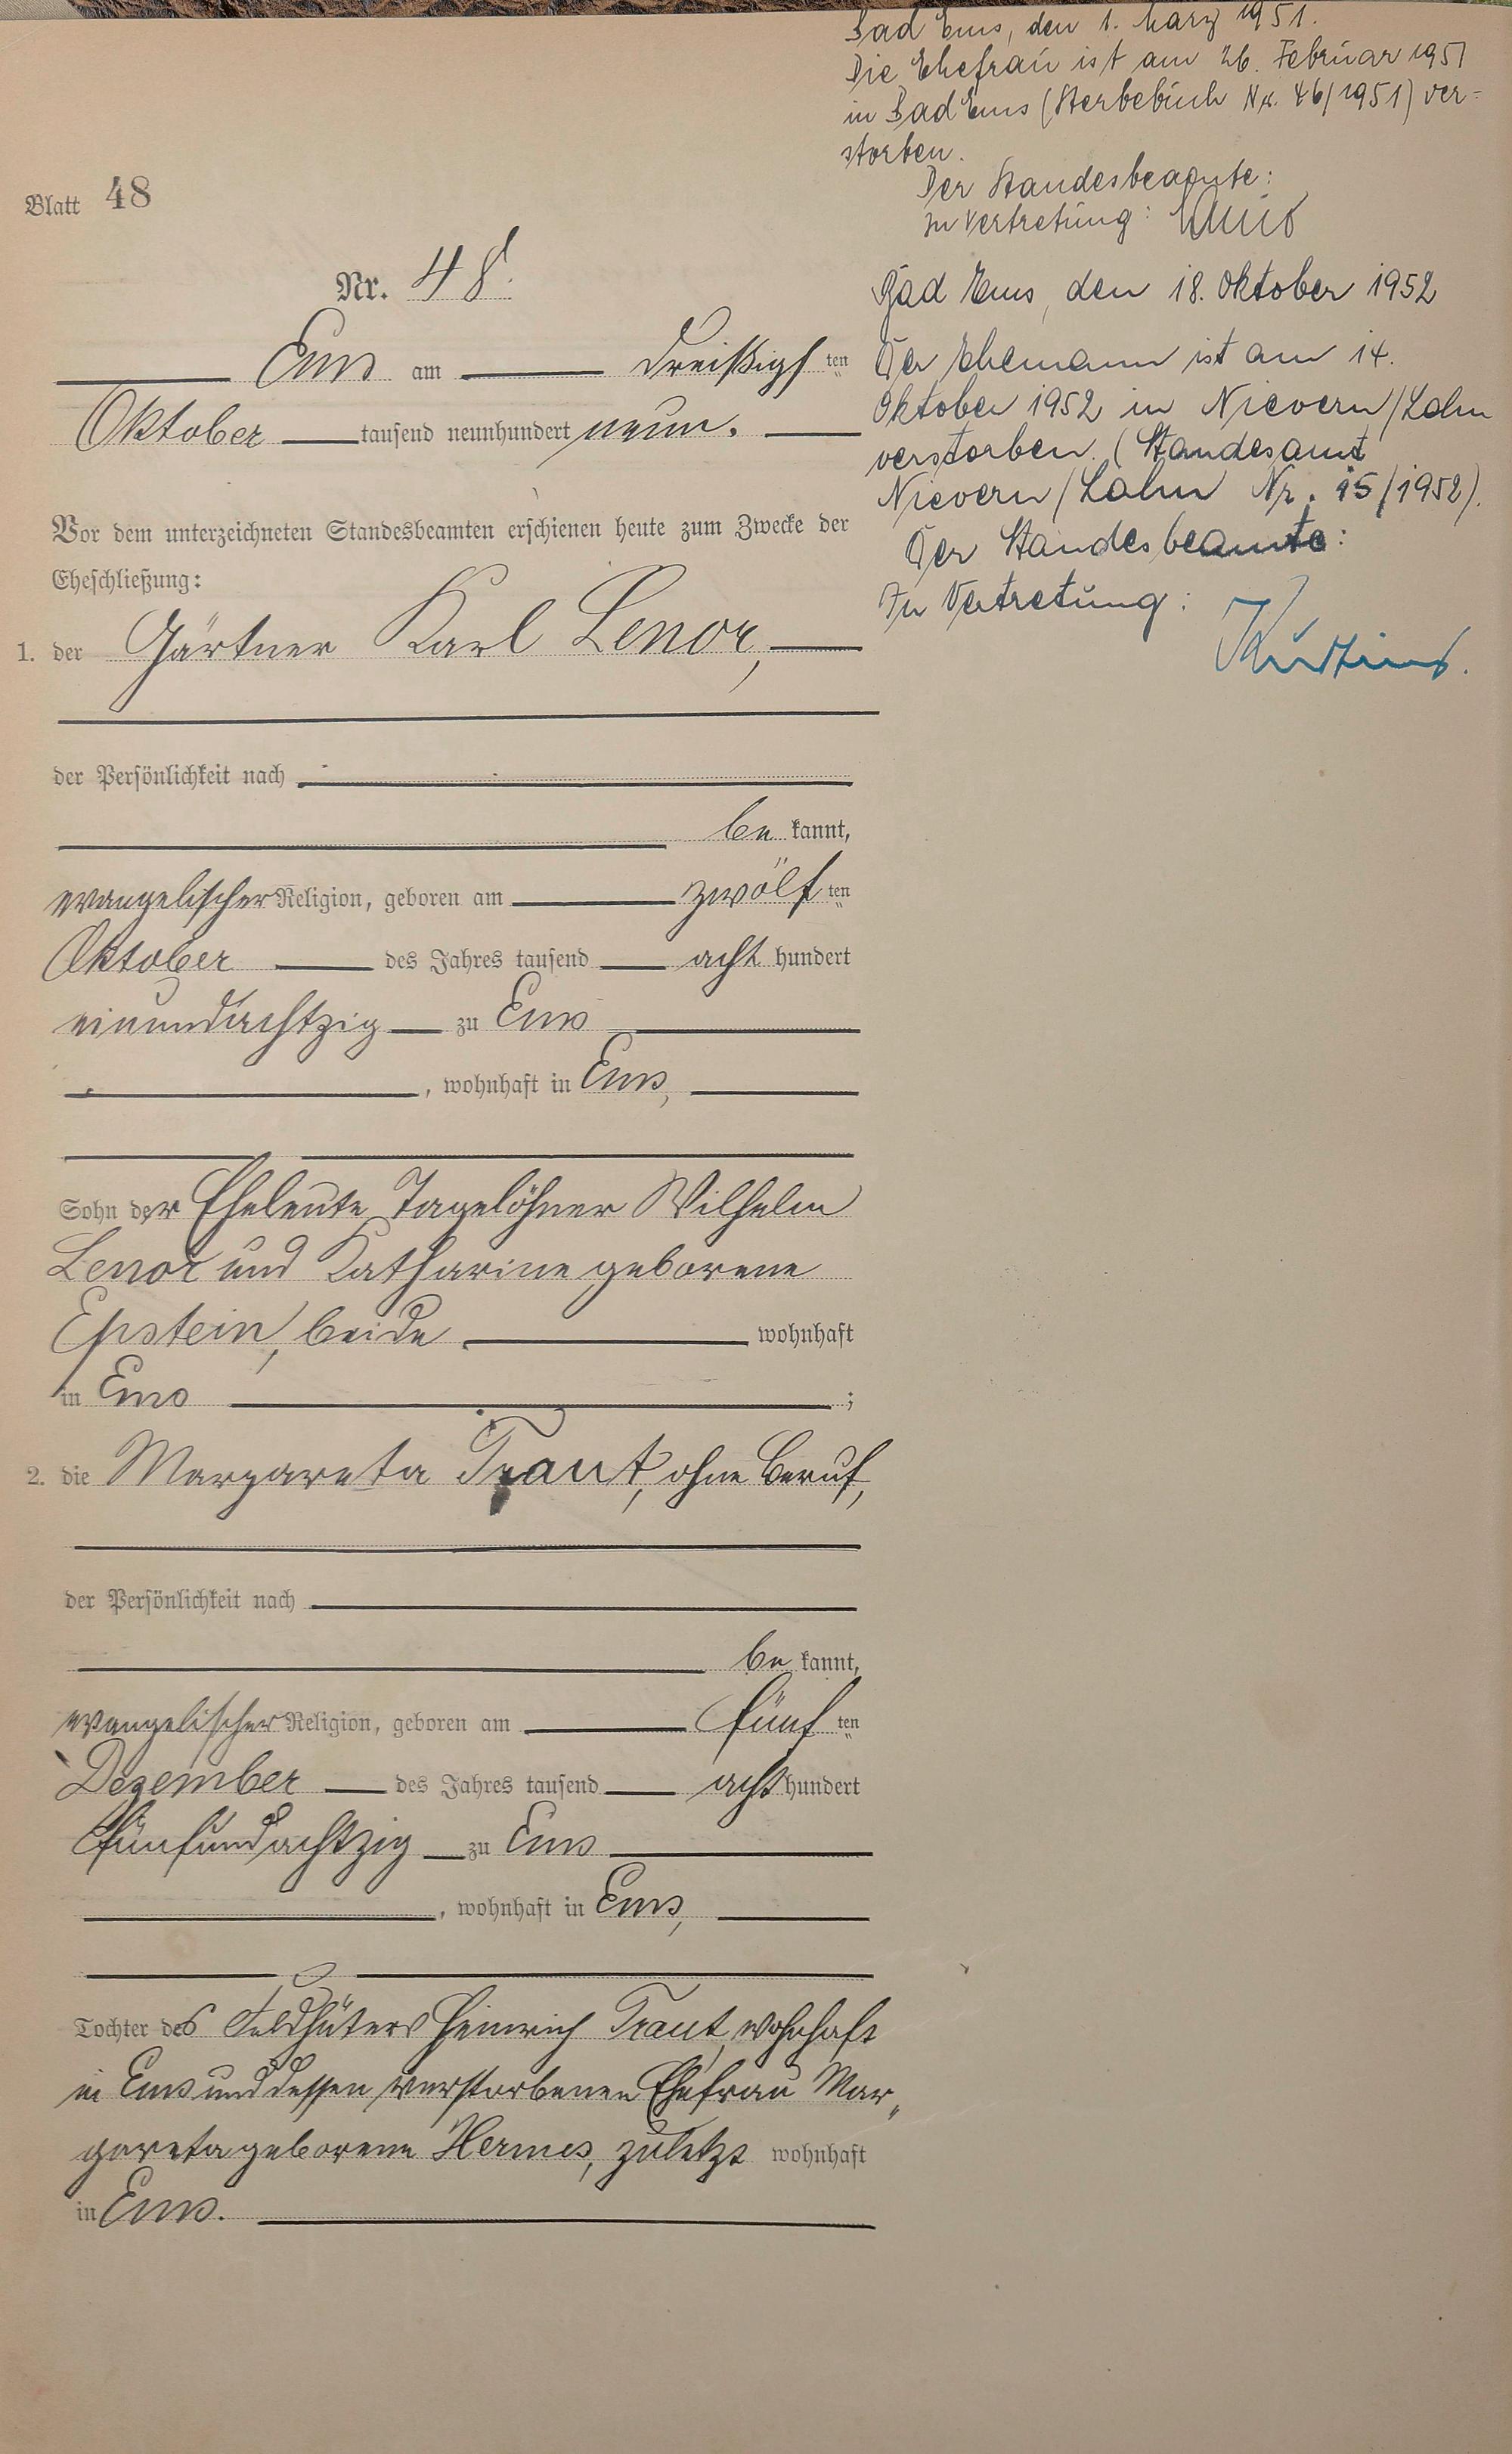 Bad Ems, den 1. März 1951.
Die Ehefrau ist am 26. Februar 1951
in Bad Ems (Sterbebuch Nr. 46/1951) ver=
storben.
Der Standesbeamte:
In Vertretung:
Bad Ems, den 18. Oktober 1952
Der Ehemann ist am 14.
Oktober 1952 in Nievern/Lahn
verstorben. (Standesamt
Nievern/Lahn Nr. 15/1952).
Der Standesbeamte:
In Vertretung:
Blatt 48
Nr. 48.
Ems am dreißigsten
Oktober tausend neunhundert neun.
Vor dem unterzeichneten Standesbeamten erschienen heute zum Zwecke der
Eheschließung:
1. der Gärtner Karl Lenor,
der Persönlichkeit nach
bekannt,
evangelischer Religion, geboren am zwölften
Oktober des Jahres tausend acht hundert
einundachtzig zu Ems
, wohnhaft in Ems,
Sohn der Eheleute Tagelöhner Wilhelm
Lenor und Katharine geborene
Epstein, beide wohnhaft
in Ems ;
2. die Margareta Traut, ohne Beruf,
der Persönlichkeit nach
bekannt,
evangelischer Religion, geboren am fünften
Dezember des Jahres tausend acht hundert
fünfundachtzig zu Ems
, wohnhaft in Ems,
Tochter des Feldhüters Heinrich Traut, wohnhaft
in Ems und dessen verstorbenen Ehefrau Mar„
gareta geborene Hermes, zuletzt wohnhaft
in Ems.